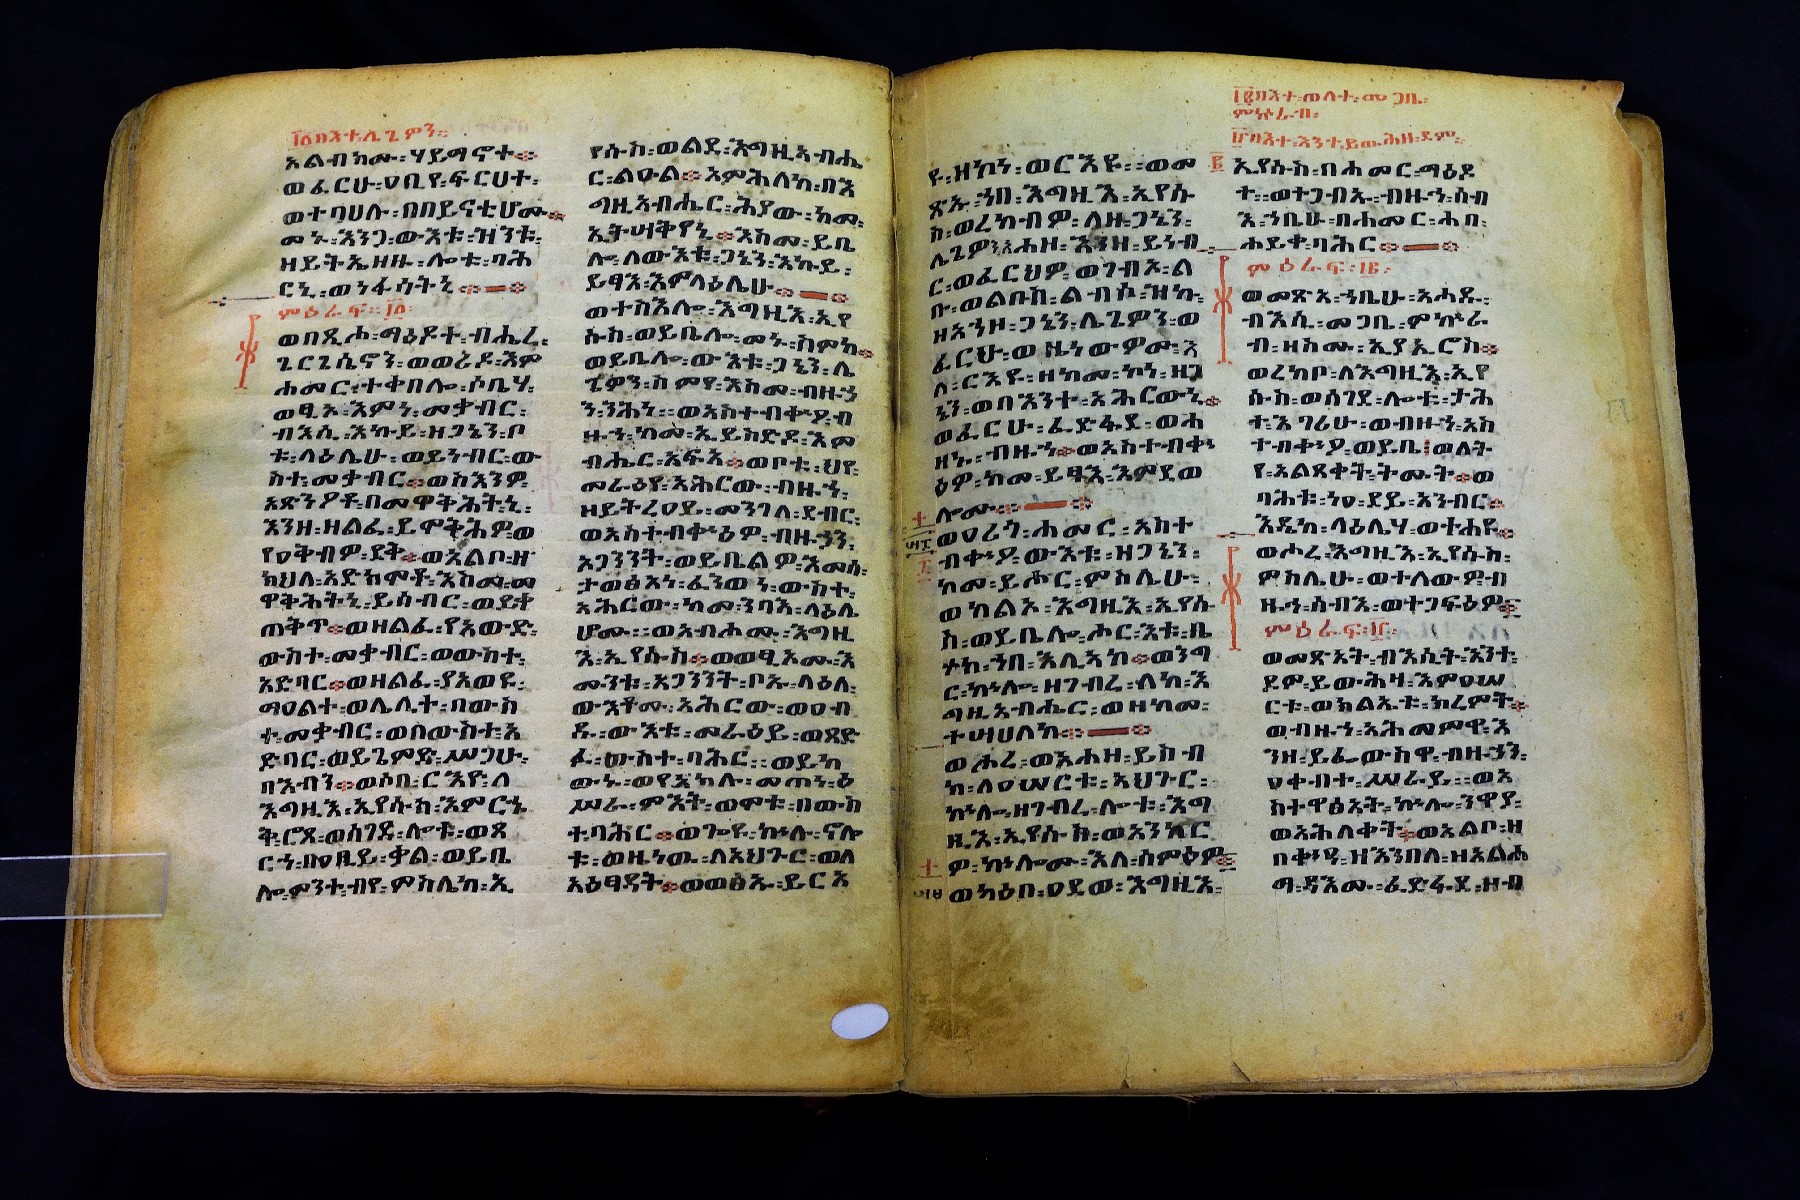 ፲፩በእተ፡ሌጌዎን።
አልብክሙ፡ሃይማኖተ።
ወፈርሁ፡ዐቢየ፡ፍርሀተ፡
ወተባሀሉ፡በበይናቲሆሙ።
መኑ፡እንጋ፡ውእቱ፡ዝንቱ፡
ዘይትኤዘዙ፡ሎቱ፡ባሕ
ርኒ፡ወነፋሳትኒ።
ምዕራፍ፡፲፩፡
ወበጺሖ፡ማዕዶተ፡ብሔረ፡
ጌርጌሴኖን፡ወወሪዶ፡እም
ሐመር፡ተቀበሎ፡ሶቤሃ፡
ወፂኦ፡እምነ፡መቃብር፡
ብእሲ፡እኩይ፡ዘጋኔን፡ቦ
ቱ፡ላዕሌሁ፡ወይነብር፡ው
ስተ፡መቃብር።ወስእንዎ
አጽንዖቶ፡በመዋቅሕትኒ፡
እንዘ፡ዘልፈ፡ይሞቅሕዎ፡ወ
የዐቅብዎ፡ደቅ።ወአልቦ፡ዘ
ክህለ፡አድክሞቶ፡እስመ፡መ
ዋቅሕትኒ፡ይሰብር፡ወደቀ
ጠቅጥ።ወዘልፈ፡የአውድ፡
ውስተ፡መቃብር፡ወውስተ፡
አድባር።ወዘልፈ፡ያአወዩ፡
ማዐልተ፡ወሌሊተ፡በውስ
ተ፡መቃብር፡ወበውስተ፡አ
ድባር፡ወይጌምድ፡ሥጋሁ፡
በእብን።ወሶበ፡ርእዮ፡ለ
እግዚእ፡ኢየሱስ፡እምርኁ
ቅ፡ሮጸ፡ወሰገደ፡ሎቱ፡ወጸ
ርኀ፡በዐቢይ፡ቃል፡ወይቤ
ሎ፡ምንተ፡ብየ፡ምስሌከ፡ኢ
የሱስ፡ወልደ፡እግዚአብሔ
ር፡ልዑል።አምሕለከ፡በእ
ግዚአብሔር፡ሕያው፡ከመ፡
ኢትሣቅየኒ።እስመ፡ይቤ
ሎ፡ለውእቱ፡ጋኔን፡እኩይ፡
ይፃእ፡እምላዕሌሁ።
ወተስእሎ፡እግዚእ፡ኢየ
ሱስ፡ወይቤሎ፡መኑ፡ስምከ።
ወይቤሎ፡ውእቱ፡ጋኔን፡ሌ
ጌዎን፡ስምየ፡እስመ፡ብዙኃ
ን፡ንሕነ፡፡ወአስተብቍዖ፡ብ
ዙኀ፡ከመ፡ኢይስድዶ፡እም
ብሔር፡አፍአ።ወቦቱ፡ህየ፡
መራዕየ፡አሕርው፡ብዙኀ፡
ዘይትረዐይ፡መንገለ፡ደብር፡
ወአስተብቍዕዎ፡ብዙኃን፡
አጋንንት፡ወይቤልዎ፡እመሰ፡
ታወፅአነ፡ፈንወነ፡ውስተ፡
አሕርው፡ከመ፡ንባእ፡ላዕሌ
ሆሙ፡፡ወአብሖሙ፡እግዚ
እ፡ኢየሱስ።ወወፂኦሙ፡እ
ሙንቱ፡አጋንንት፡ቦኡ፡ላዕለ፡
ውእቶሙ፡አሕርው፡ወዐብ
ዱ፡ውእቱ፡መራዕይ፡ወጸድ
ፈ፡ውስተ፡ባሕር፡፡ወይከ
ውኑ፡ወየአክሉ፡መጠነ፡ዕ
ሥራ፡ምእት፡ወሞቱ፡በውስ
ተ፡ባሕር።ወጐዩ፡ኵሉ፡ኖሎ
ቱ፡ወዜነዉ፡ለአህጉር፡ወለ
አዕፃዳት።ወወፅኡ፡ይርእ
፲፪በእተ፡ወለተ፡መጋቤ፡
ምኵራብ፡
፲፫በእተ፡እንተ፡ይዉሕዘ፡ደም፡
ዩ፡ዘኮነ፡ወርእዩ፡፡ወመ
ጽኡ፡ኀበ፡እግዚእ፡ኢየሱ
ስ፡ወረከብዎ፡ለዘ፡ጋኔን፡
ሌጌዎን፡አሐዞ፡እንዘ፡ይነብ
ር፡ወፈርህዎ፡ወገብአ፡ል
ቡ፡ወልቡስ፡ልብሶ፡ዝኩ፡
ዘአንዞ፡ጋኔን፡ሌጌዎን፡ወ
ፈርሁ፡ወዜነውዎሙ፡እ
ለ፡ርእዩ፡ዘከመ፡ኮነ፡ዘጋ
ኔን፡ወበእንተ፡አሕርውኒ።
ወፈርሁ፡ፈድፋደ፡ወሐ
ዘኑ፡ብዙኀ።ወአስተብቍ
ዕዎ፡ከመ፡ይፃእ፡እምደወ
ሎሙ።
ወዐሪጎ፡ሐመር፡አስተ
ብቍዖ፡ውእቱ፡ዝጋኔን፡
ከመ፡ይሖር፡ምስሌሁ፡
ወከልኦ፡እግዚእ፡ኢየሱ
ስ፡ወይቤሎ፡ሖር፡እቱ፡ቤ
ተከ፡ኀበ፡እሊአከ።ወንግ
ር፡ኵሎ፡ዘገብረ፡ለከ፡እ
ግዚአብሔር፡ወዘከመ፡
ተሣሀለከ።
ወሖረ፡ወአሐዘ፡ይስብ
ክ፡ለዐሠርቱ፡አህጉር፡
ኵሎ፡ዘገብረ፡ሎቱ፡እግ
ዚእ፡ኢየሱስ፡ወአንከር
ዎ፡ኵሎሙ፡እለ፡ሰምዕዎ።
ወካዕበ፡ዐደወ፡እግዚእ፡
ኢየሱስ፡በሐመር፡ማዕዶ
ተ፡፡ወተጋብኡ፡ብዙኀ፡ሰብ
እ፡ኀቤሁ፡በሐመር፡ሐበ፡
ሐይቀ፡ባሕር።
ምዕራፍ፡፲፪፡
ወመጽአ፡ኀቤሁ፡አሐዱ፡
ብእሲ፡መጋቤ፡ምኵራ
ብ፡ዘስሙ፡ኢያኢሮስ።
ወረከቦ፡ለእግዚእ፡ኢየ
ሱስ፡ወሰገደ፡ሎቱ፡ታሕ
ተ፡እገሪሁ፡ወብዙኀ፡አስ
ተብቍዖ፡ወይቤ፡ወለት
የ፡አልጸቀት፡ትሙት።ወ
ባሕቱ፡ነዐ፡ደይ፡አንብር።
እዴከ፡ላዕሌሃ፡ወተሐዩ።
ወሖረ፡እግዚእ፡ኢየሱስ፡
ምስሌሁ፡ወተለውዎ፡ብ
ዙኀ፡ሰብእ፡ወተጋፍዕዎ።
ምዕራፍ፡፲፫፡
ወመጽአት፡ብእሲት፡እንተ፡
ደም፡ይውሕዛ፡እምዐሠ
ርቱ፡ወክልኤቱ፡ክረምት።
ወብዙኀ፡አሕመምዋ፡እ
ንዘ፡ይፌውስዋ፡ብዙኃን፡
ዐቀብተ፡ሥራይ፡፡ወአ
ስተዋፅአት፡ኵሎ፡ንዋያ፡
ወአሕለቀት።ወአልቦ፡ዘ
በቍዓ፡ዘእንበለ፡ዘአልሐ
ማ፡ዳእሙ፡ፈድፋደ፡ዘብ